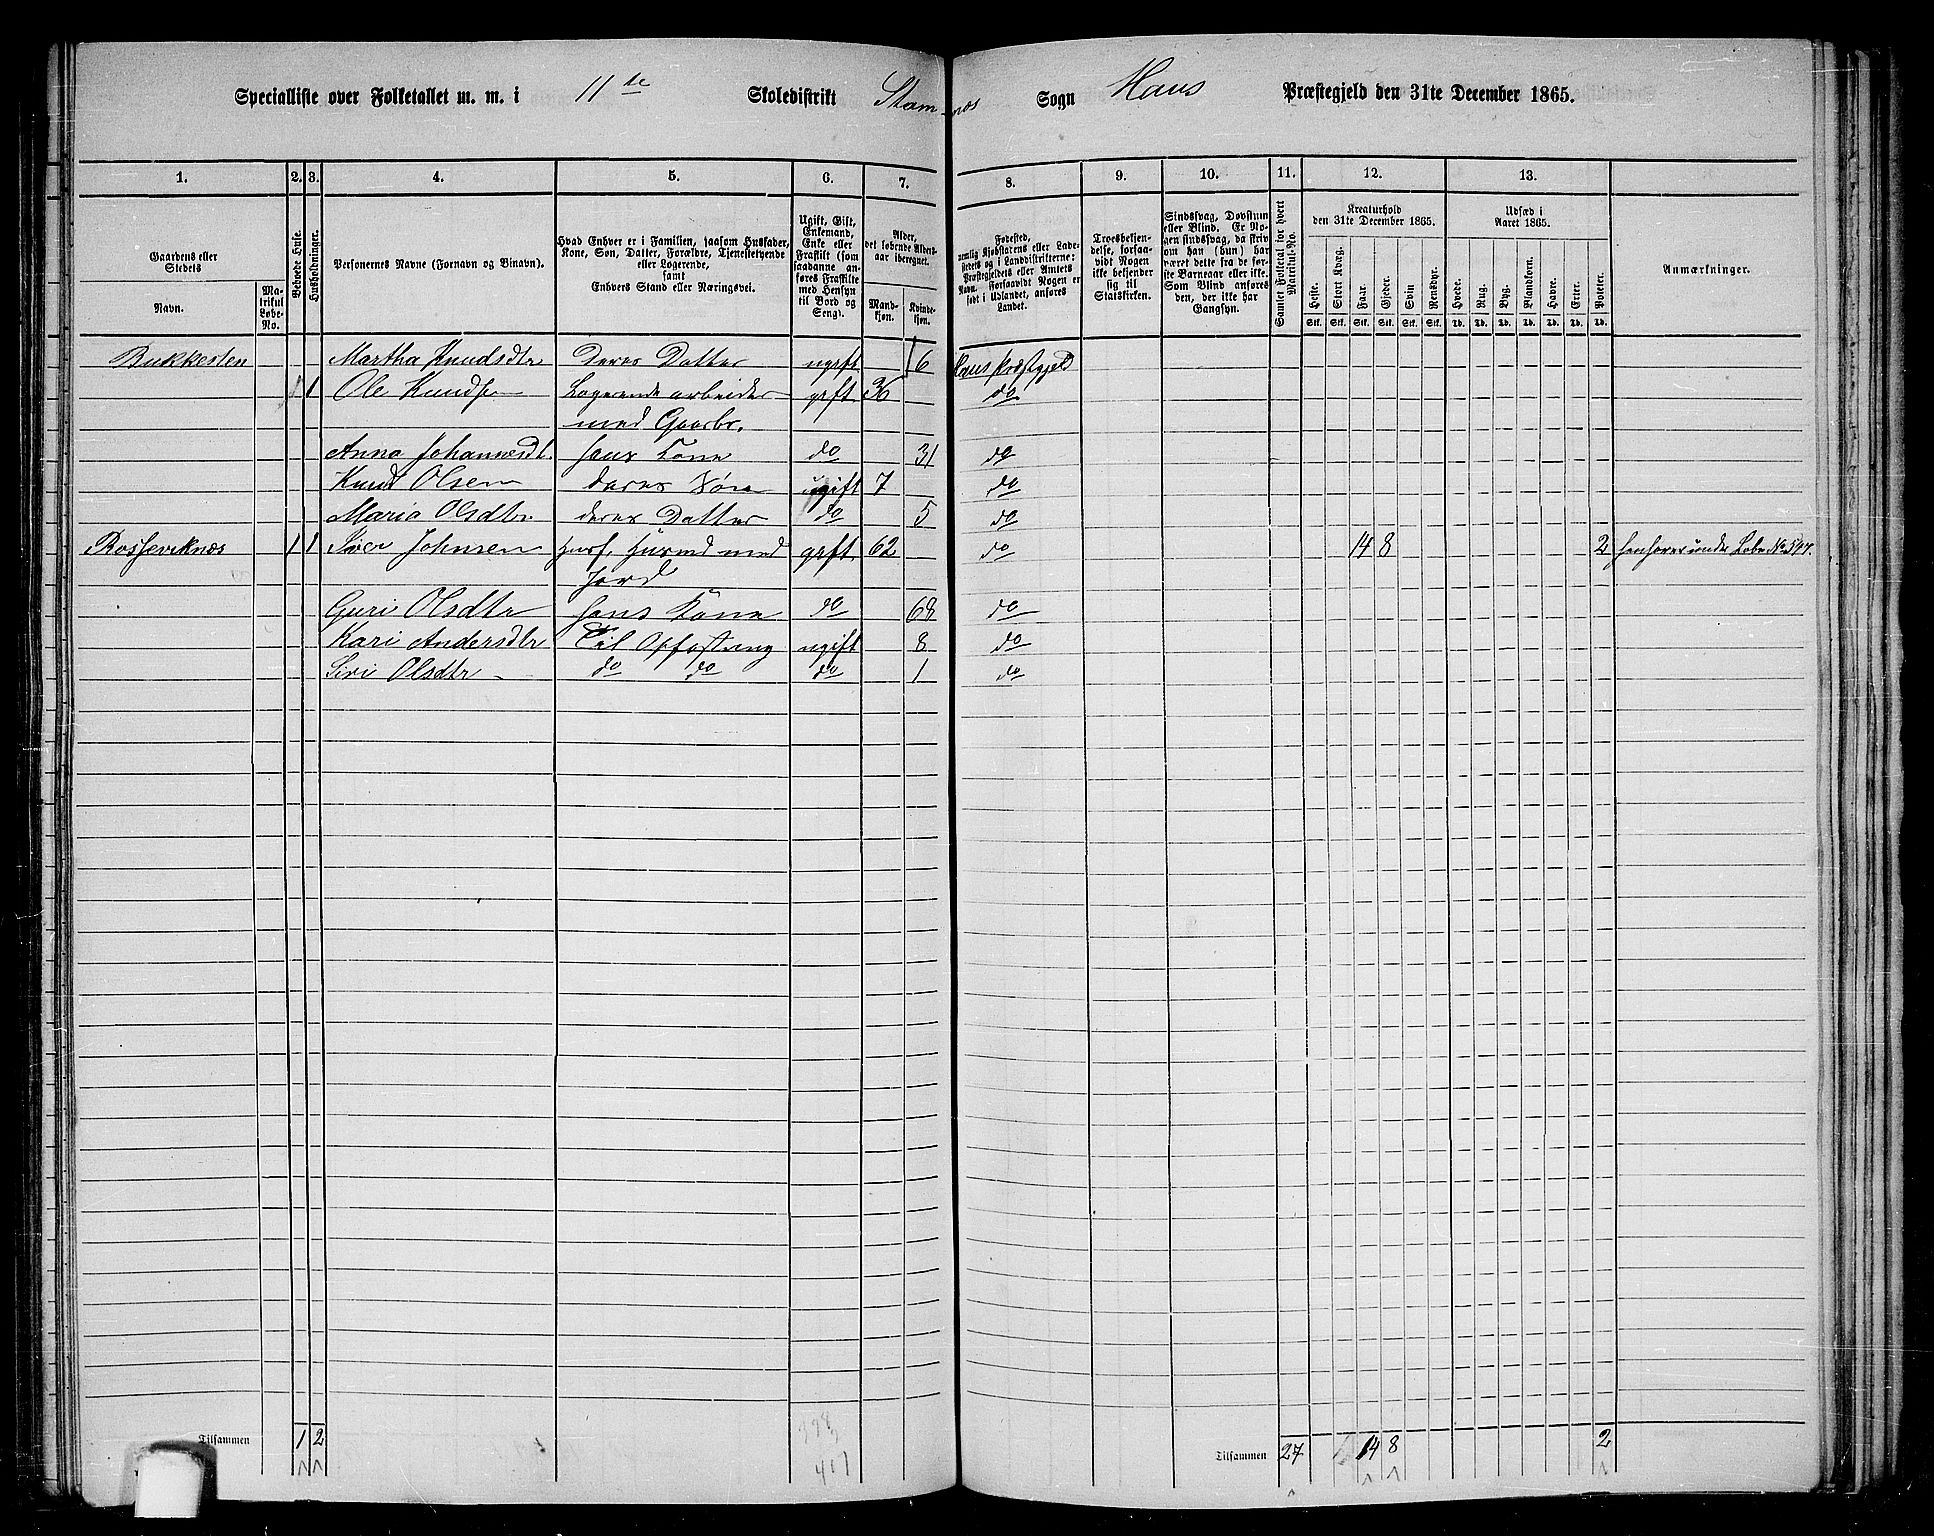 Specialliste over Folketallet m. m. i 11te Skoledistrikt Stamnæs Sogn Haus Præstegjeld den 31te December 1865.
1. 2. 3. 4. 5. 6. 7. 8. 9. 10. 11. 12. 13.
Gaardens eller Stedets Navn.
Matrikul Løbe-No.
Beboede Huse.
Husholdninger.
Personernes Navne (Fornavn og Binavn).
Hvad Enhver er i Familien, saasom Husfader, Kone, Søn, Datter, Forældre, Tjenestetyende eller Logerende, samt Enhvers Stand eller Næringsvei.
Ugift, Gift, Enkemand, Enke eller Fraskilt (som saadanne anføres Fraskilte med Hensyn til Bord og Seng).
Alder, det løbende Aldersaar iberegnet.
Mandkjøn. Kvindekjøn.
Fødested, nemlig Kjøbstadens eller Ladestedets og i Landdistrikterne: Præstegjeldets eller Amtets Navn. Forsaavidt Nogen er født i Udlandet, anføres Landet.
Troesbekjendelse, forsaavidt Nogen ikke bekjender sig til Statskirken.
Sindssvag, Døvstum eller Blind. Er Nogen sindssvag, da skrives om han (hun) har været dette fra de første Barneaar eller ikke. Som Blind anføres den, der ikke har Gangsyn.
Samlet Folketal for hvert Matrikul-No.
Kreaturhold den 31te December 1865.
Heste. Stort Kvæg. Faar. Gjeder. Svin Rensdyr.
Stk. Stk. Stk. Stk. Stk. Stk.
Udsæd i Aaret 1865.
Hvede. Rug. Byg. Blandkorn. Havre. Erter. Poteter.
Td. Td. Td. Td. Td. Td. Td.
Anmærkninger.
Bukkesten Martha Knudsdtr Deres Datter ugift 6 Haus Præstgjeld
1 Ole Knudsen Logerende arbeider gift 36 do
med Gaarbr.
Anna Johannesdt. Hans Kone do 31 do
Knud Olsen deres Søn ugift 7 do
Maria Olsdtr deres Datter do 5 do
1 1 Iver Johnsen Husf. Husmd med gift 62 do 14 8 2 henhører under Løbe No
Jord
Guri Olsdtr Hans Kone do 68 do
Kari Andersdtr Til Opfostring ugift 8 do
Siri Olsdtr do do do 1 do
Tilsammen 1 2 Tilsammen 27 14 8 2
417